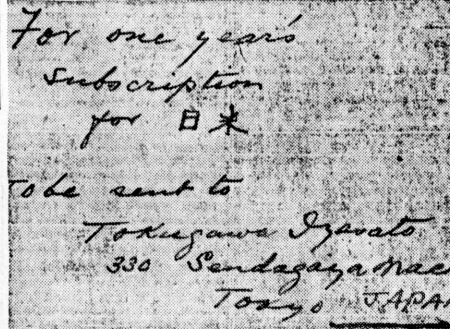 For one year's
subscription
for 日米
To be sent to
Tokugawa Iyesato
330 Sendagaya mac
Tokyo JAPAN